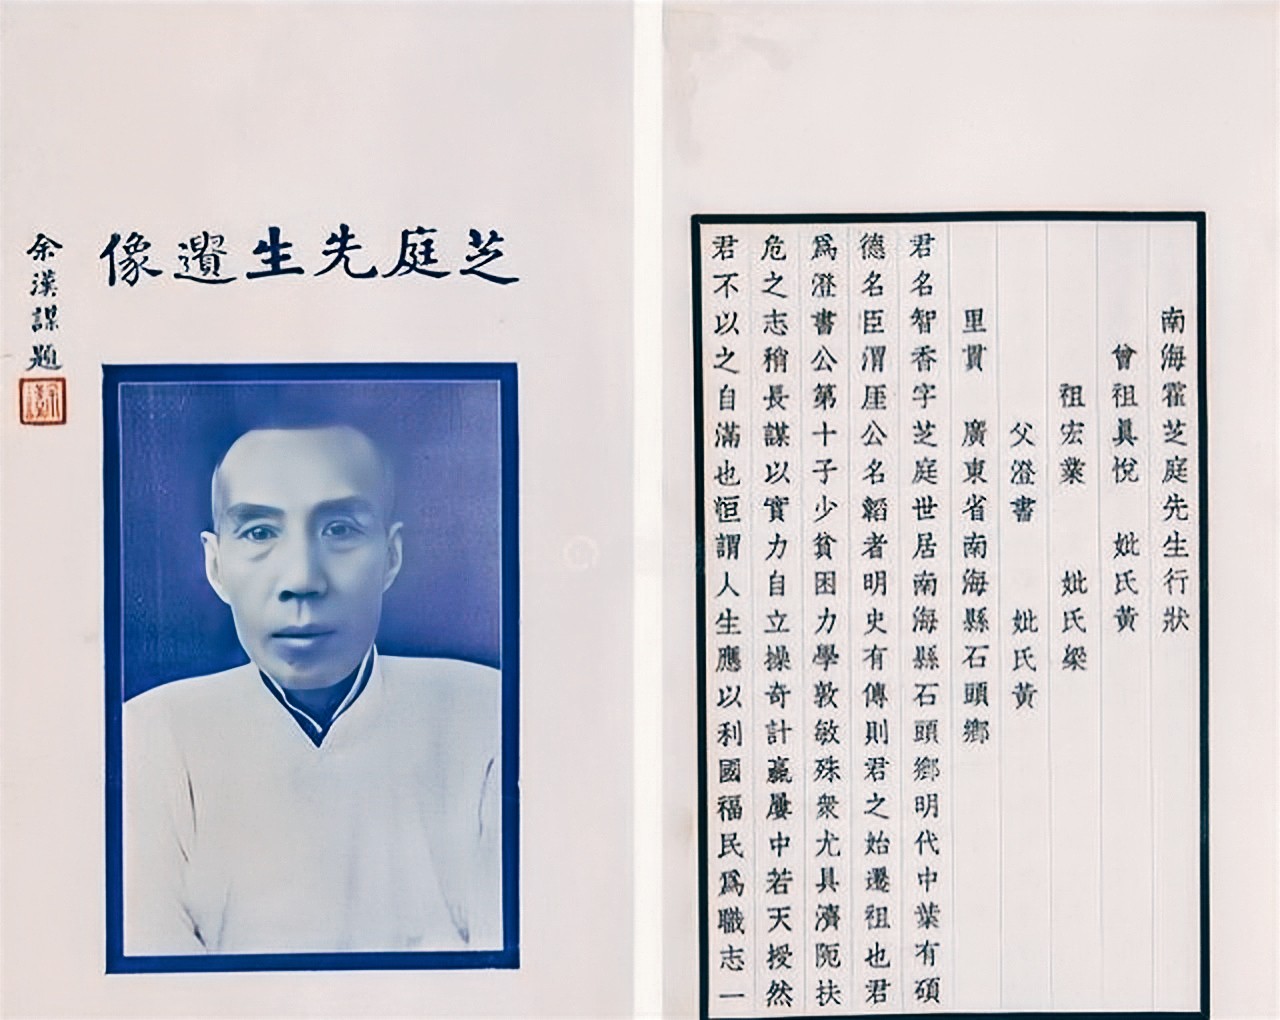 芝庭先生遺像
余漢謀題
南海霍芝庭先生行狀
曾祖眞悅 妣氏黃
祖宏業 妣氏梁
父澄書 妣氏黃
里貫 廣東省南海縣石頭鄉
君名智香字芝庭世居南海縣石頭鄉明代中葉有碩
德名臣渭厓公名韜者明史有傳則君之始遷祖也君
爲澄書公第十子少貧困力學敦敏殊衆尤具濟阨扶
危之志稍長謀以實力自立操奇計贏屢中若天授然
君不以之自滿也恒謂人生應以利國福民爲職志一